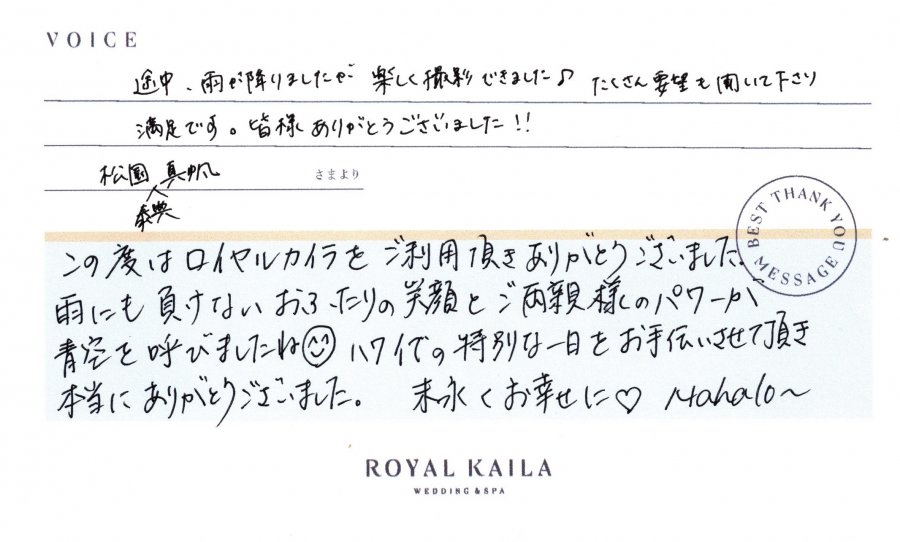 VOICE
途中、雨が降りましたが 楽しく撮影できました♪ たくさん要望も聞いて下さり
満足です。皆様ありがとうございました!!
松園 真帆 さまより
義典
BEST THANK YOU MESSAGE
この度はロイヤルカイラをご利用頂きありがとうございました。
雨にも負けないおふたりの笑顔とご両親様のパワーが
青空を呼びましたね☺ ハワイでの特別な一日をお手伝いさせて頂き
本当にありがとうございました。 末永くお幸せに♡ Mahalo~
ROYAL KAILA
WEDDING & SPA